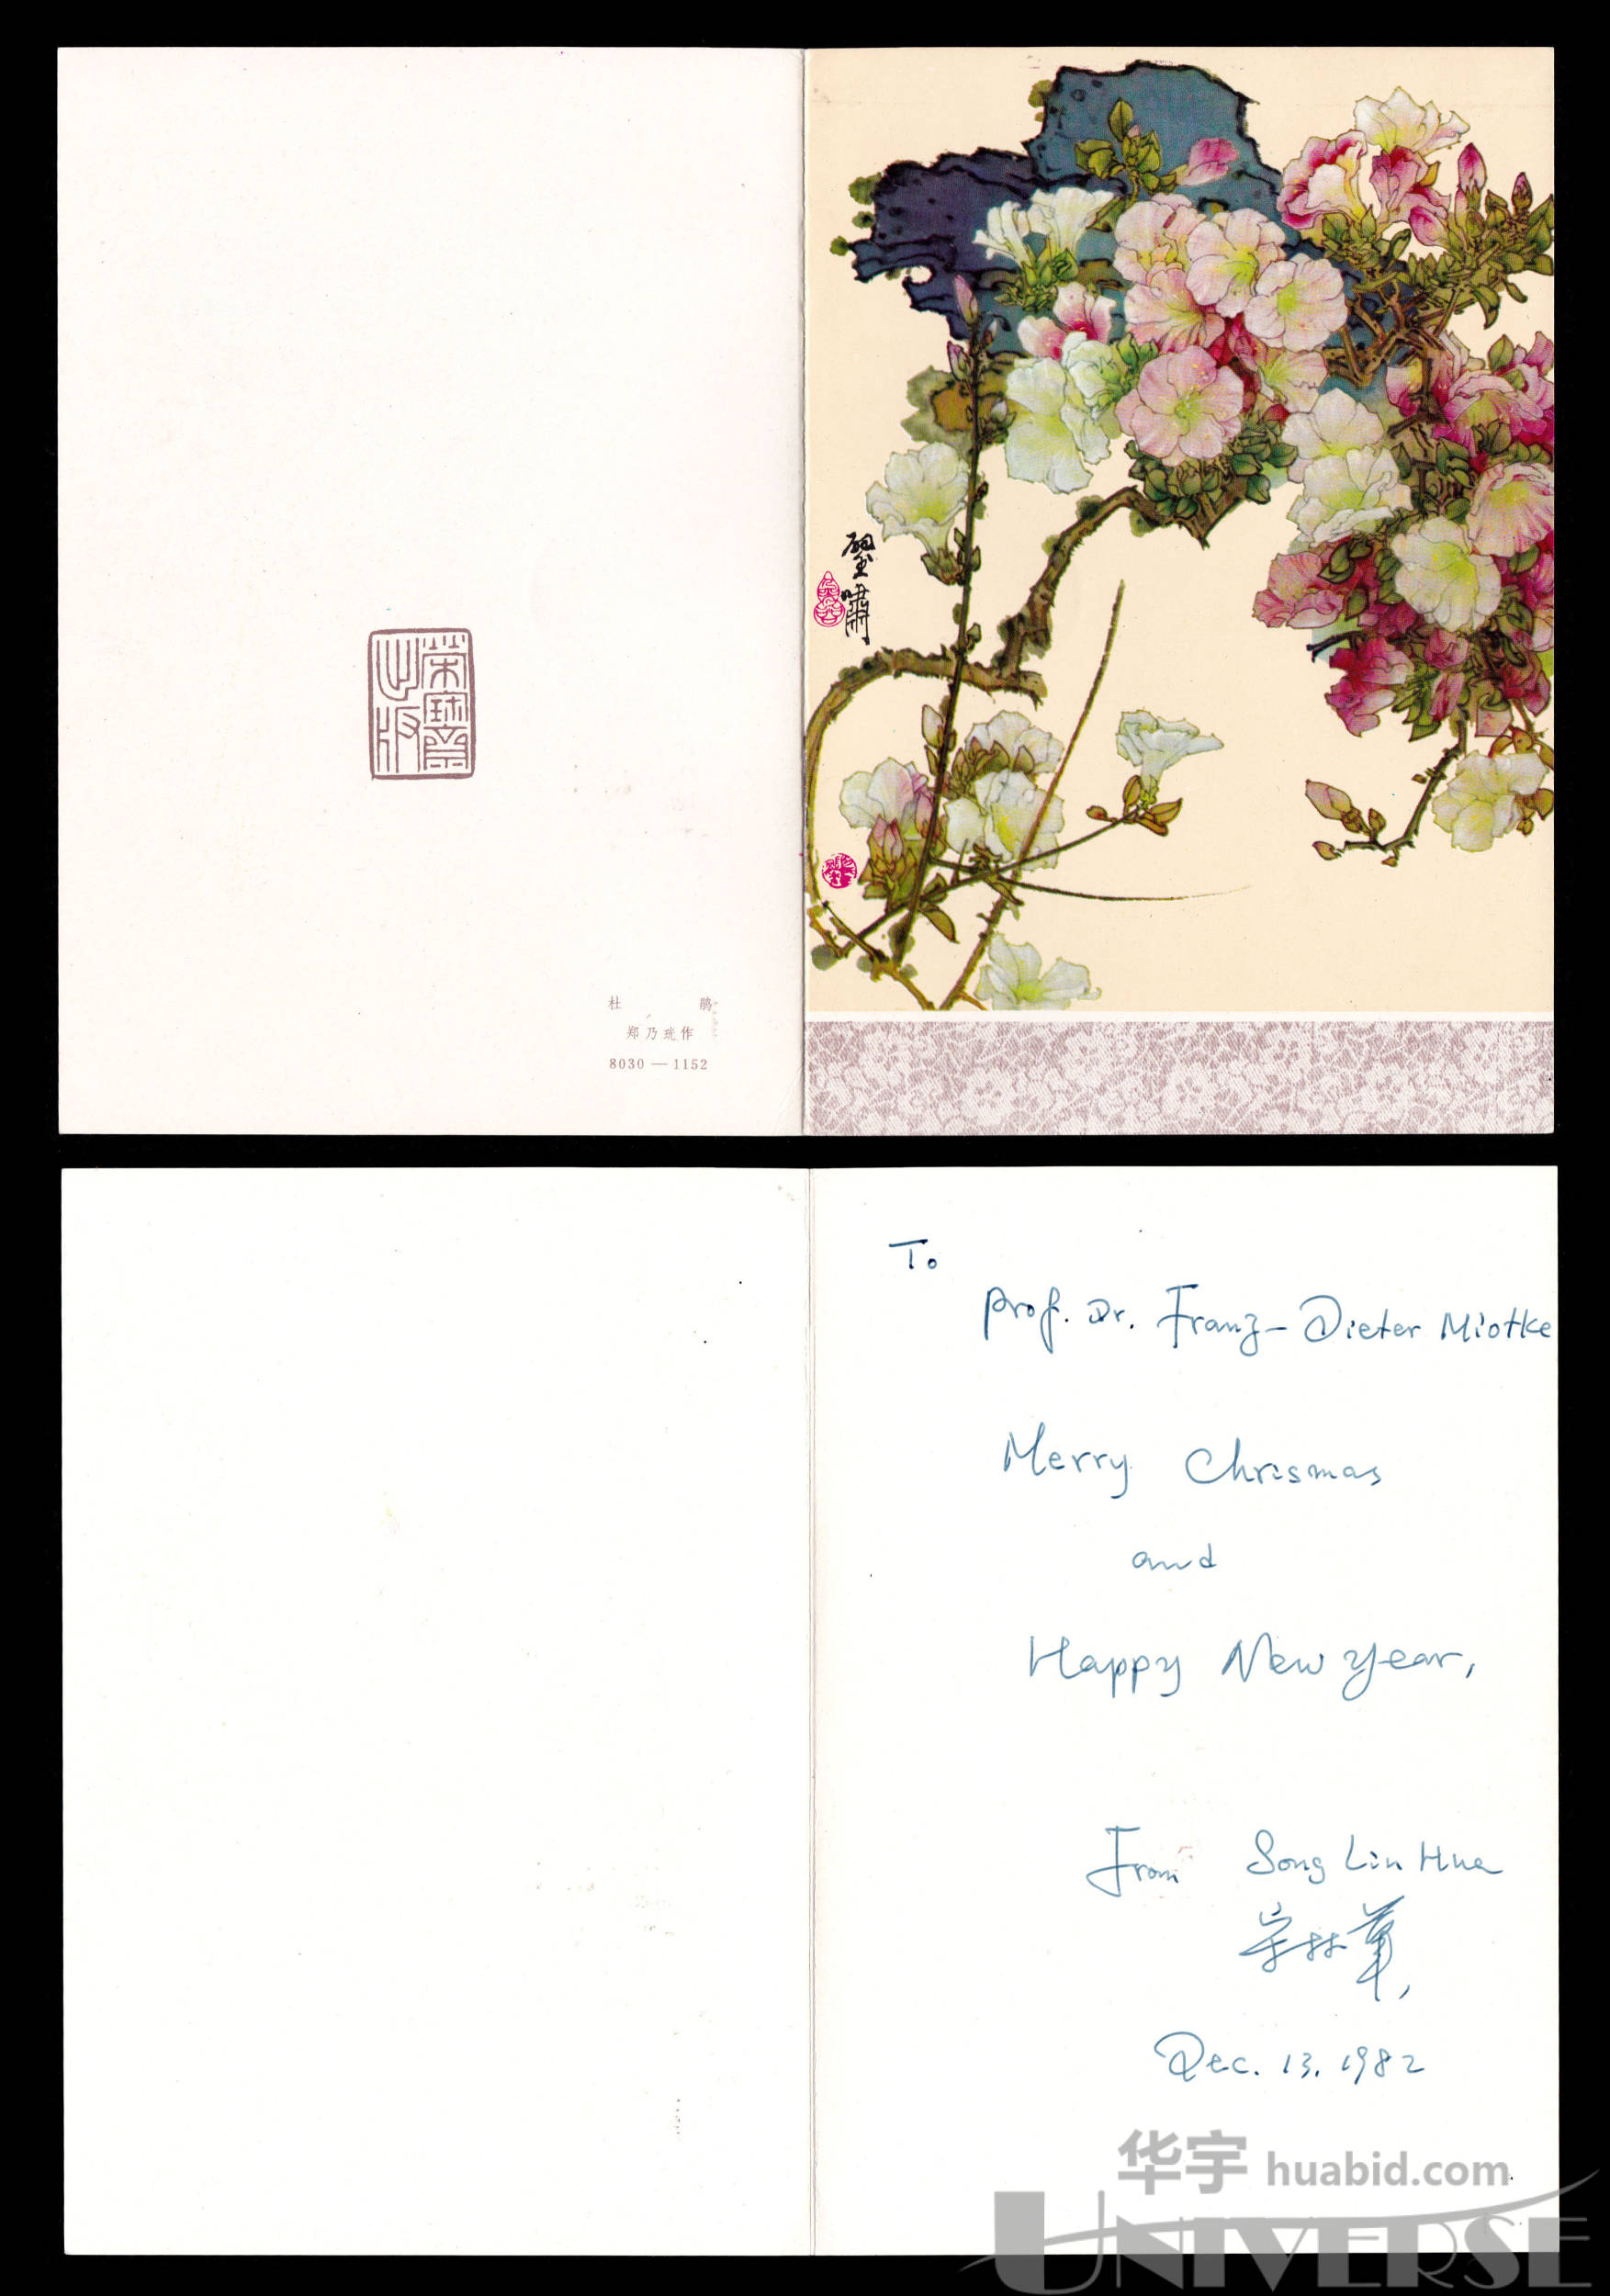 榮寶齋
出版
杜 鹃
郑乃珖作
8030 — 1152
璧
嘯
To
Prof. Dr. Franz-Dieter Miotke
Merry Chrismas
and
Happy New Year,
From Song Lin Hua
宋林華,
Dec. 13. 1982
华宇 huabid.com
UNIVERSE